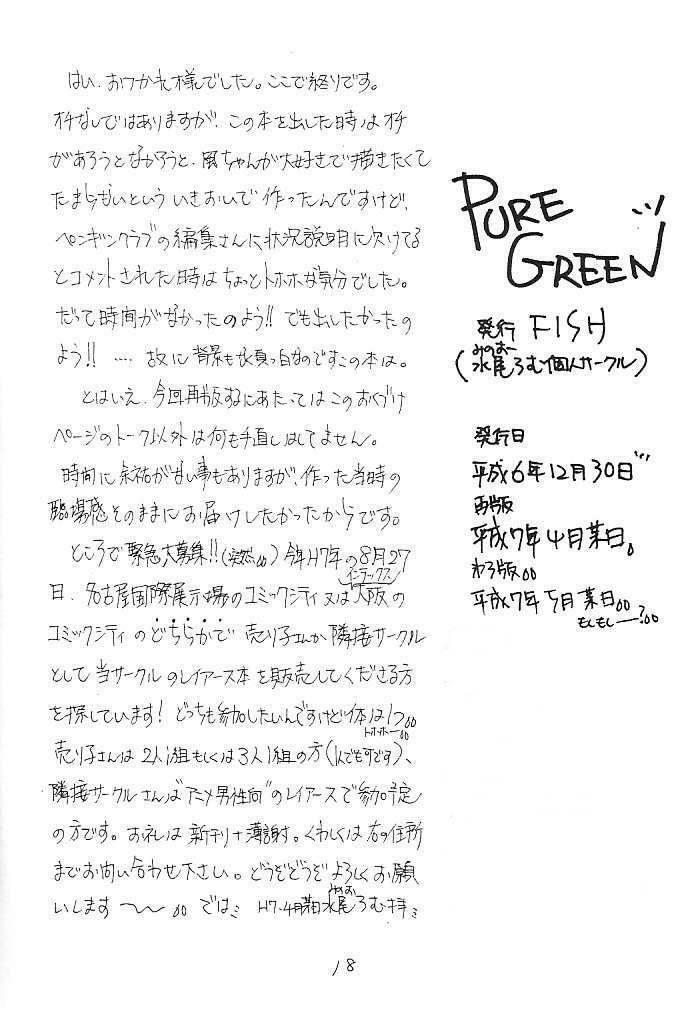 はい、おつかれ様でした。ここで終りです。
オチなしではありますが、この本を出した時はオチ
があろうとなかろうと、風ちゃんが大好きで描きたくて
たまらないという いきおいで 作ったんですけど、
ペンギンクラブの編集さんに状況説明に欠けてる
とコメントされた時はちょっとトホホな気分でした。
だって時間がなかったのよう!! でも出したかったの
よう!! …… 故に背景も真っ白なのですこの本は。
とはいえ、今回再版するにあたってはこのおくづけ
ページのトーク以外は何も手直しはしてません。
時間に余裕が甘い事もありますが、作った当時の
臨場感そのままにお届けしたかったからです。
ところで緊急大募集!!(突然。。) 今年H7年の8月27
日、名古屋国際展示場のコミックシティ又は大阪の
インテックス
コミックシティのどちらかで 売り子さんか隣接サークル
として当サークルのレイアース本を販売してくださる方
を探しています! どっちも参加したいんですけど体は1つ。。
トホホー。。
売り子さんは2人1組もしくは3人1組の方(1人でも可です)、
隣接サークルさんは"アニメ男性向"のレイアースで参加予定
の方です。お礼は新刊+薄謝。くわしくは右の住所
までお問い合わせ下さい。どうぞどうぞよろしくお願
いします 〜〜 。。 では
H7.4月某日 水尾ろむ拝
みのお
18
PURE
GREEN
発行 FISH
みのおー
(水尾ろむ個人サークル)
発行日
平成6年12月30日
再版
平成7年4月某日。
わろ版。。
平成7年5月某日。。
もしもしー?。。